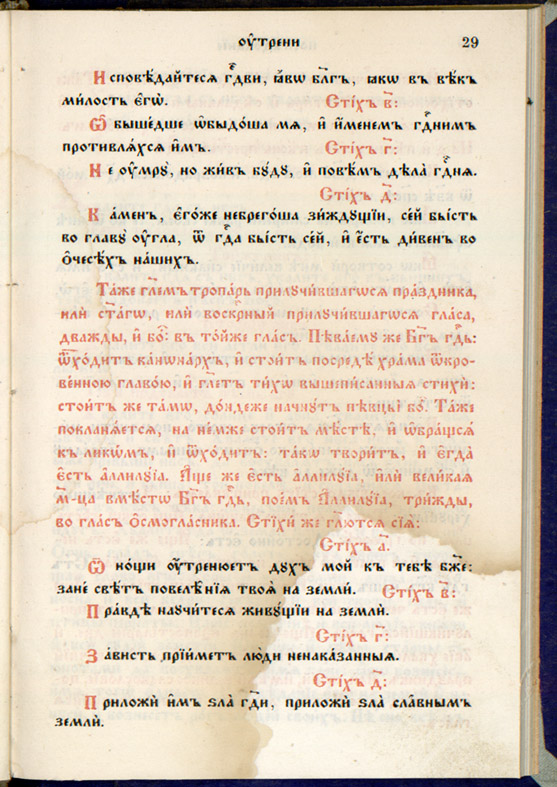 оу҆́трени 29
И҆сповѣ́дайтесѧ гдⷭ҇ви, ꙗ҆́кѡ бл҃гъ, ꙗ҆́кѡ въ вѣ́къ
ми́лость є҆гѡ̀. Сті́хъ в҃:
Ѡ҆быше́дше ѡ҆быдо́ша мѧ̀, и҆ и҆́менемъ гдⷭ҇нимъ
противлѧ́хсѧ и҆̀мъ. Сті́хъ г҃:
Не оу҆мрꙋ̀, но жи́въ бꙋ́дꙋ, и҆ повѣ́мъ дѣла̀ гдⷭ҇нѧ.
Сті́хъ д҃:
Ка́мень, є҆го́же небрего́ша зи́ждꙋщїи, се́й бы́сть
во главꙋ̀ оу҆́гла, ѿ гдⷭ҇а бы́сть се́й, и҆ є҆́сть ди́венъ во
ѻ҆чесѣ́хъ на́шихъ.
Та́же гл҃емъ тропа́рь прилꙋчи́вшагѡсѧ пра́здника,
и҆лѝ ст҃а́гѡ, и҆лѝ воскрⷭ҇ный прилꙋчи́вшагѡсѧ гла́са,
два́жды, и҆ бо҃: въ то́йже гла́съ. Пѣва́емꙋ же Бг҃ъ гдⷭ҇ь:
ѿхо́дитъ канѡна́рхъ, и҆ стои́тъ посредѣ̀ хра́ма ѿкро-
ве́нною главо́ю, и҆ гл҃етъ ти́хѡ вышепи́санныѧ стихѝ:
стои́тъ же та́мѡ, до́ндеже начнꙋ́тъ пѣвцы̀ бо҃. Та́же
поклонѧ́етсѧ, на не́мже стои́тъ мѣ́стѣ, и҆ ѡ҆бра́щсѧ
къ ли́кѡмъ, и҆ ѿхо́дитъ: та́кѡ твори́тъ, и҆ є҆гда̀
є҆́сть а҆ллилꙋ́їа. А҆́ще же є҆́сть а҆ллилꙋ́їа, и҆лѝ вели́каѧ
м҃-ца вмѣ́стѡ Бг҃ъ гдⷭ҇ь, пое́мъ А҆ллилꙋ́їа, три́жды,
во гла́съ ѻ҆смогла́сника. Стїхи́ же гл҃ютсѧ сїѧ̑:
Сті́хъ а҃.
Ѿ но́щи оу҆́тренюетъ дꙋ́хъ мо́й къ тебѣ̀ бж҃е:
занѐ свѣ́тъ повелѣ̑нїѧ твоѧ̑ на землѝ. Сті́хъ в҃:
Пра́вдѣ наꙋчи́тесѧ живꙋ́щїи на землѝ.
Сті́хъ г҃:
За́висть прїи́метъ лю́ди ненака̑занныѧ.
Сті́хъ д҃:
Приложѝ и҆̀мъ ѕла̑ гдⷭ҇и, приложѝ ѕла̑ сла̑внымъ
землѝ.